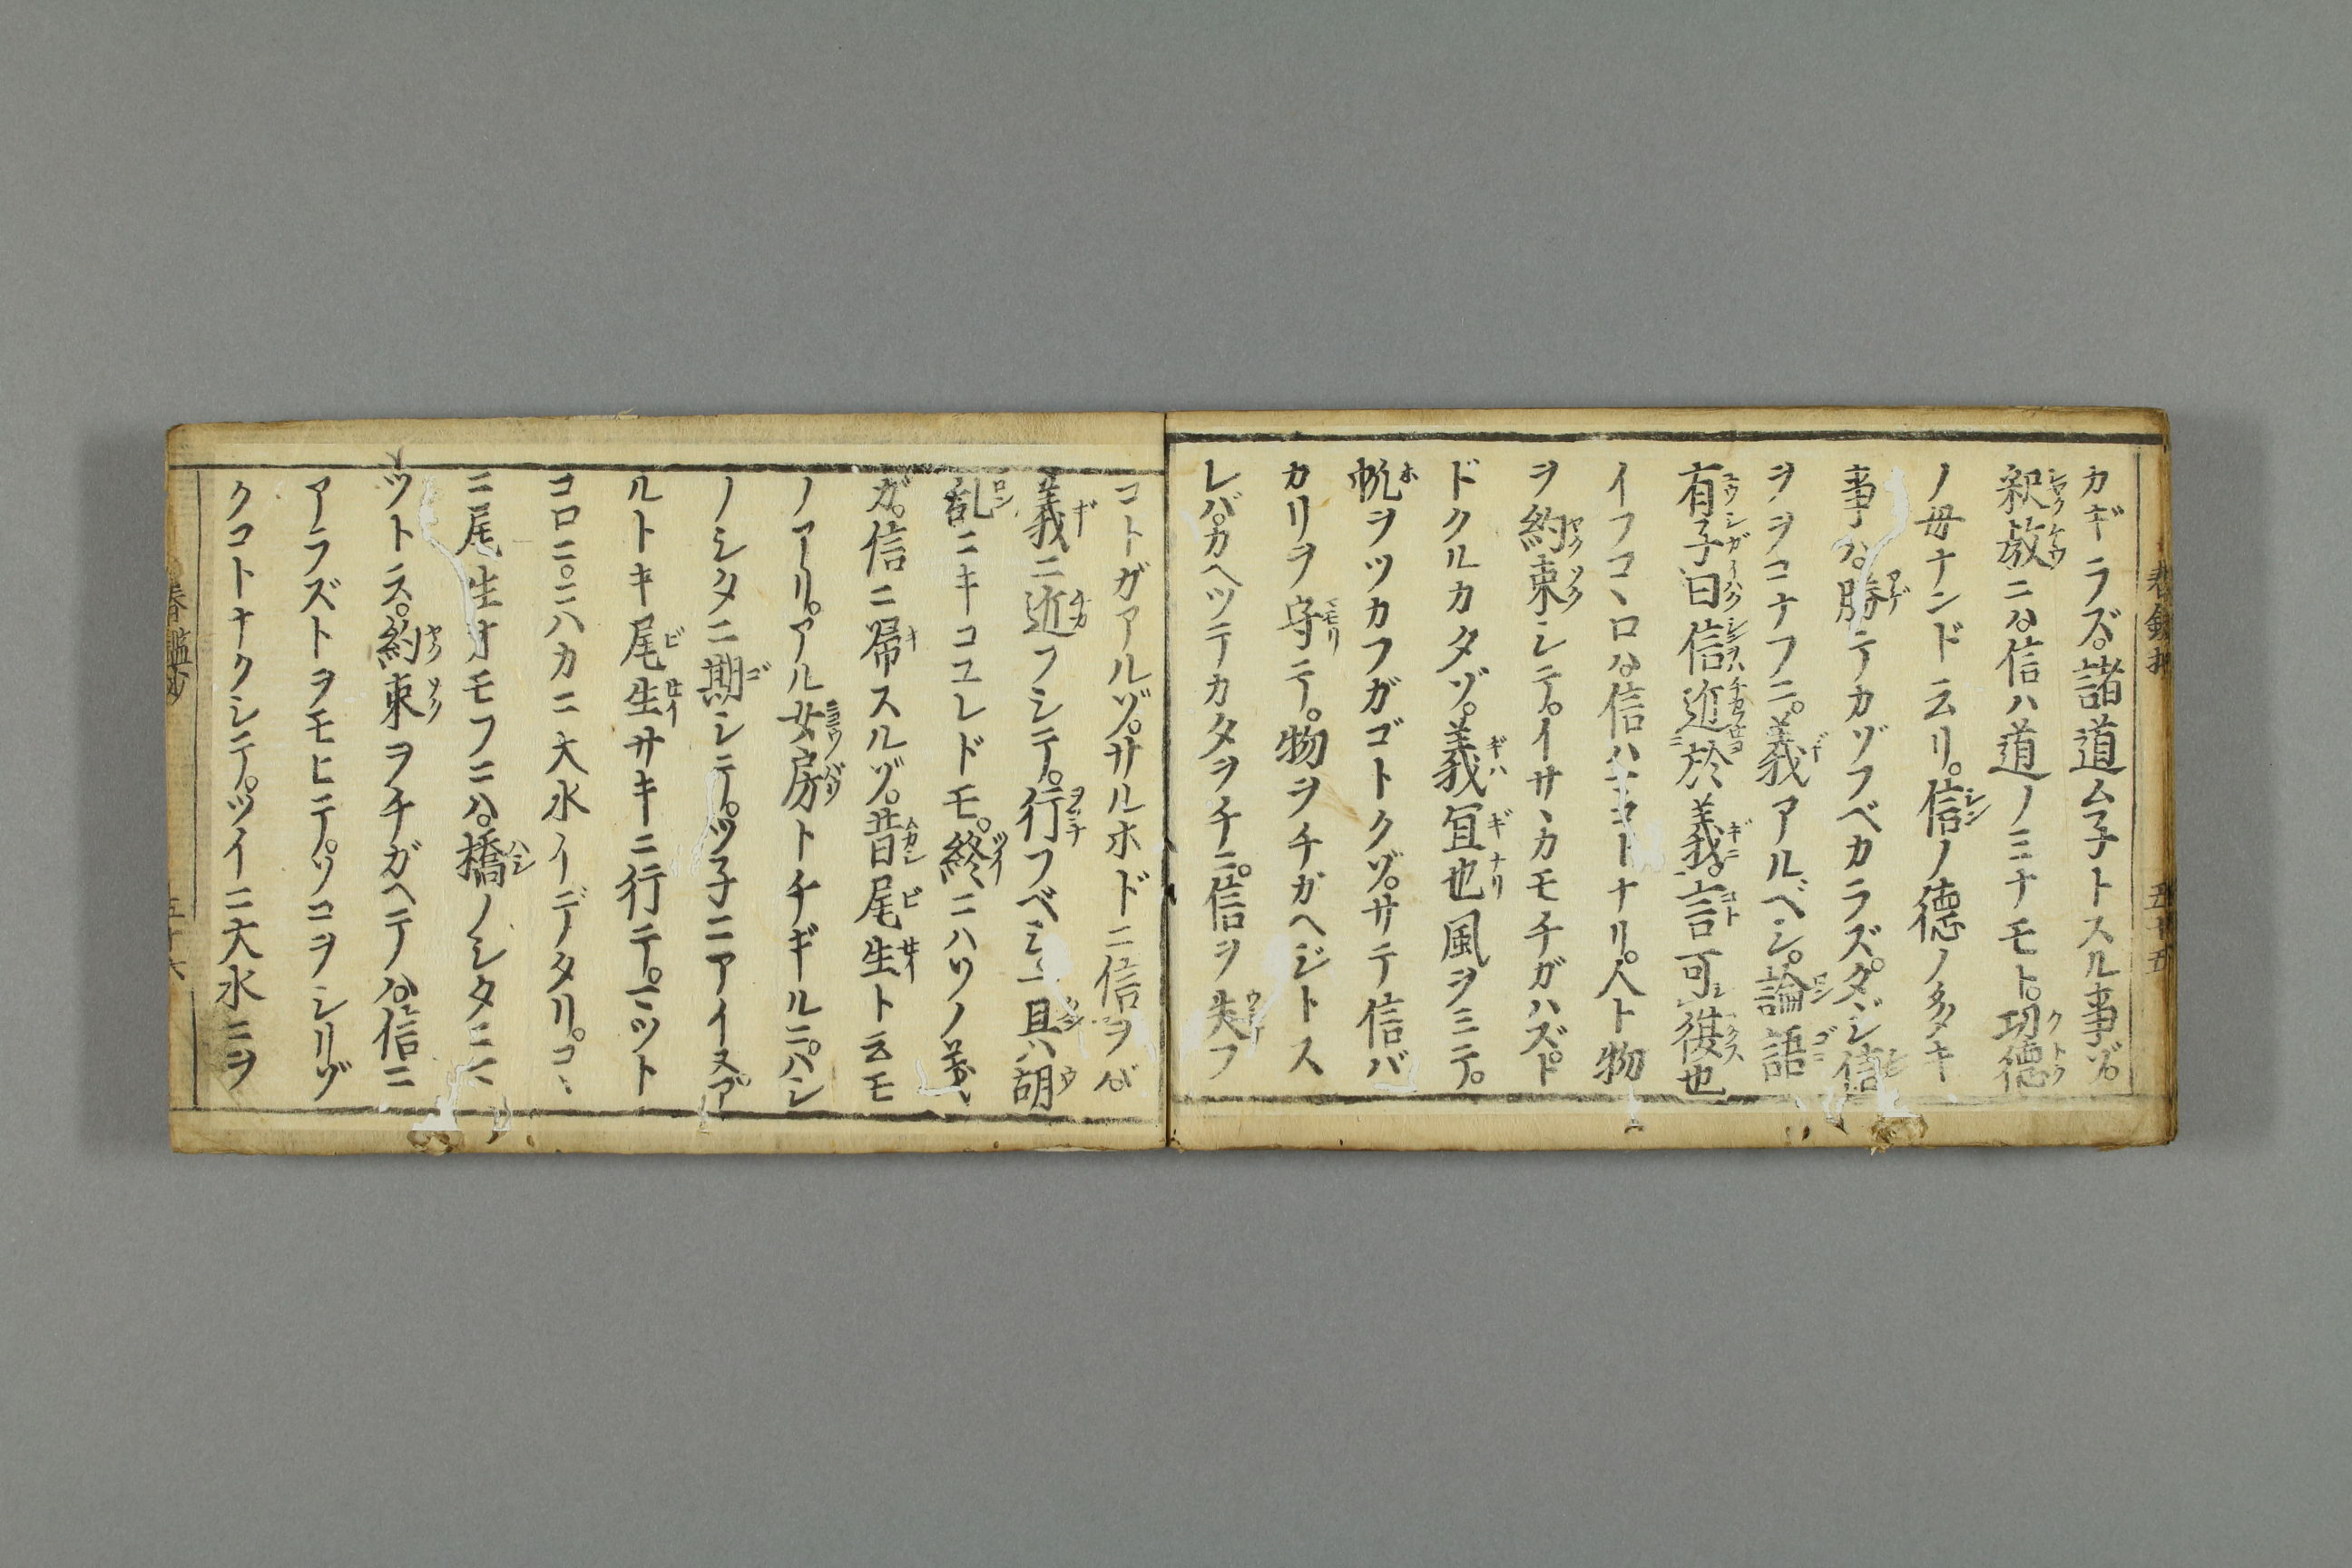 カギラズ。諸道ム子トスル事ゾ。
釈教ニハ。信ハ道ノミナモト。功徳
ノ母ナンド云リ。信ノ徳ノ多キ
事ハ。勝テカゾフベカラズ。タヾシ信
ヲヲコナフニ。義アルベシ。論語
有子曰信近於義。言可復也
イフコヽロハ。信ハマコトナリ。人ト物
ヲ約束シテ。イサヽカモチガハズ。ド
ドクルカタゾ。義ハ宜也風ヲミテ。
帆ヲツカフガゴトクゾ。サテ信バ
カリヲ守テ。物ヲチガヘジトス
レバ。カヘツテカタヲチニ。信ヲ失フ
コトガアルゾ。サルホドニ信ヲバ
義ニ近フシテ。行フベシ
乱ニキコユレドモ。終ニハソノ義ヽ
ガ。信ニ帰スルゾ。昔尾生ト云モ
ノアリ。アル女房トチギルニ。ハシ
ノシタニ期シテ。ツ子ニアイヌ。ア
ルトキ尾生サキニ行テ。ミツト
コロニ。ニハカニ大水イデタリ。コヽ
ニ尾生オモフニハ。橋ノシタニテ
ツトス。約束ヲチガヘテハ。信ニ
アラズトヲモヒテ。ソコヲシリゾ
クコトナクシテ。ツイニ大水ニヲ
春鑑抄